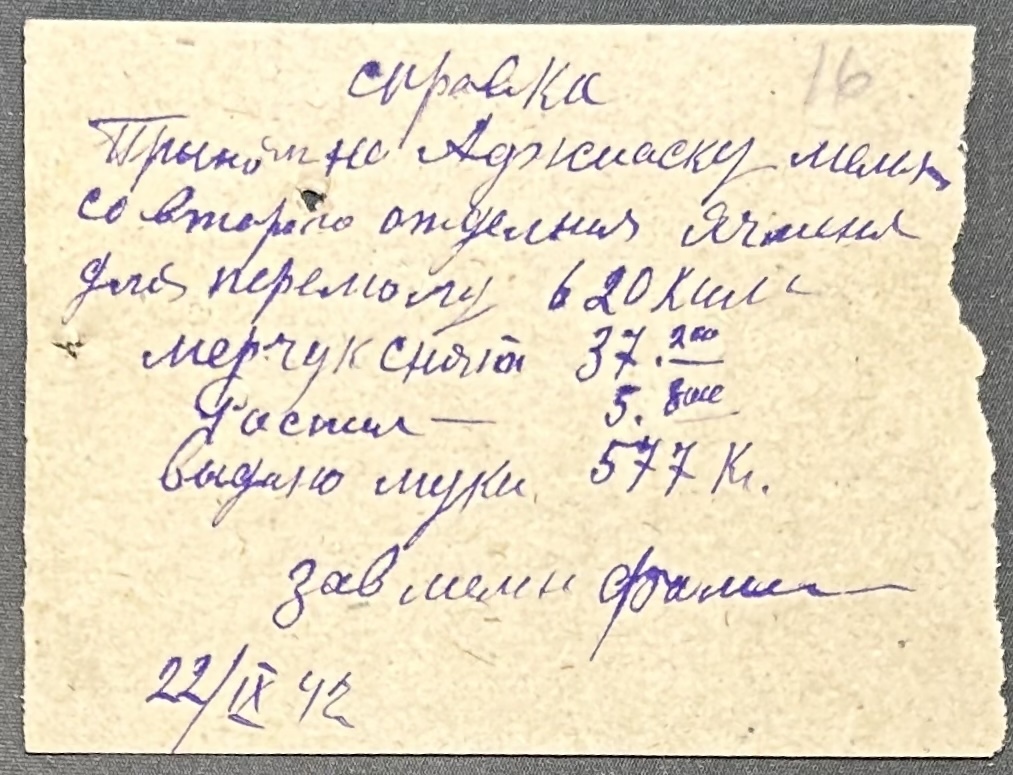 16
справка
Прынѣт на Аджиаску мелн
со второго отделния Ячменя
для перемолу 620 Кил
мерчук снято 37.200
Роспил — 5.800
выдано муки 577 Кг.
зав мелн
22/IX 42